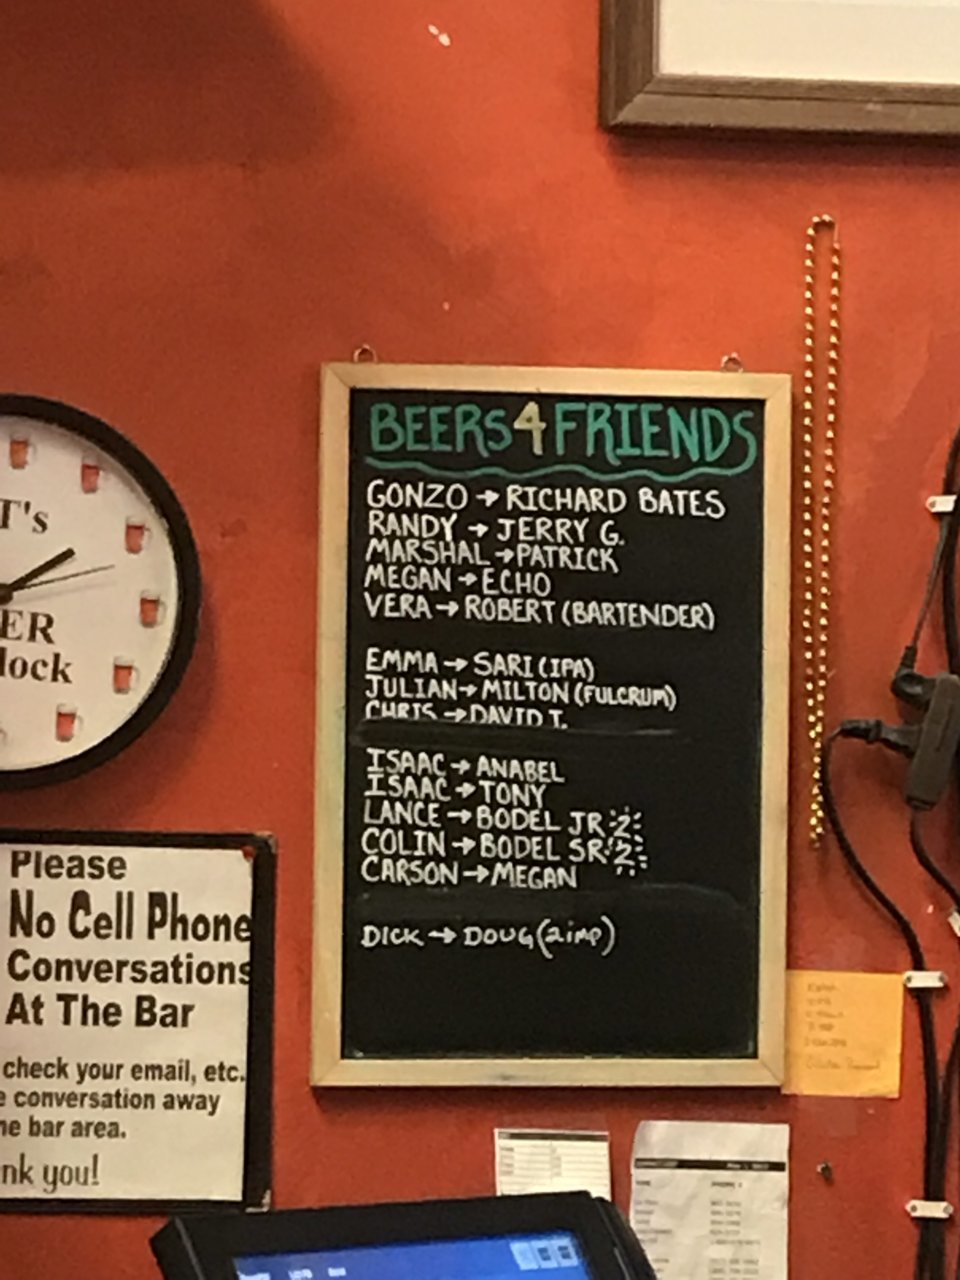 BEERS 4 FRIENDS
GONZO → RICHARD BATES
RANDY → JERRY G.
MARSHAL → PATRICK
MEGAN → ECHO
VERA → ROBERT (BARTENDER)
EMMA → SARI (IPA)
JULIAN → MILTON (FULCRUM)
CHRIS → DAVID T.
ISAAC → ANABEL
ISAAC → TONY
LANCE → BODEL JR 2
COLIN → BODEL SR 2
CARSON → MEGAN
DICK → DOUG (2 imp)
T's
ER
lock
Please
No Cell Phone
Conversations
At The Bar
check your email, etc.
e conversation away
he bar area.
nk you!